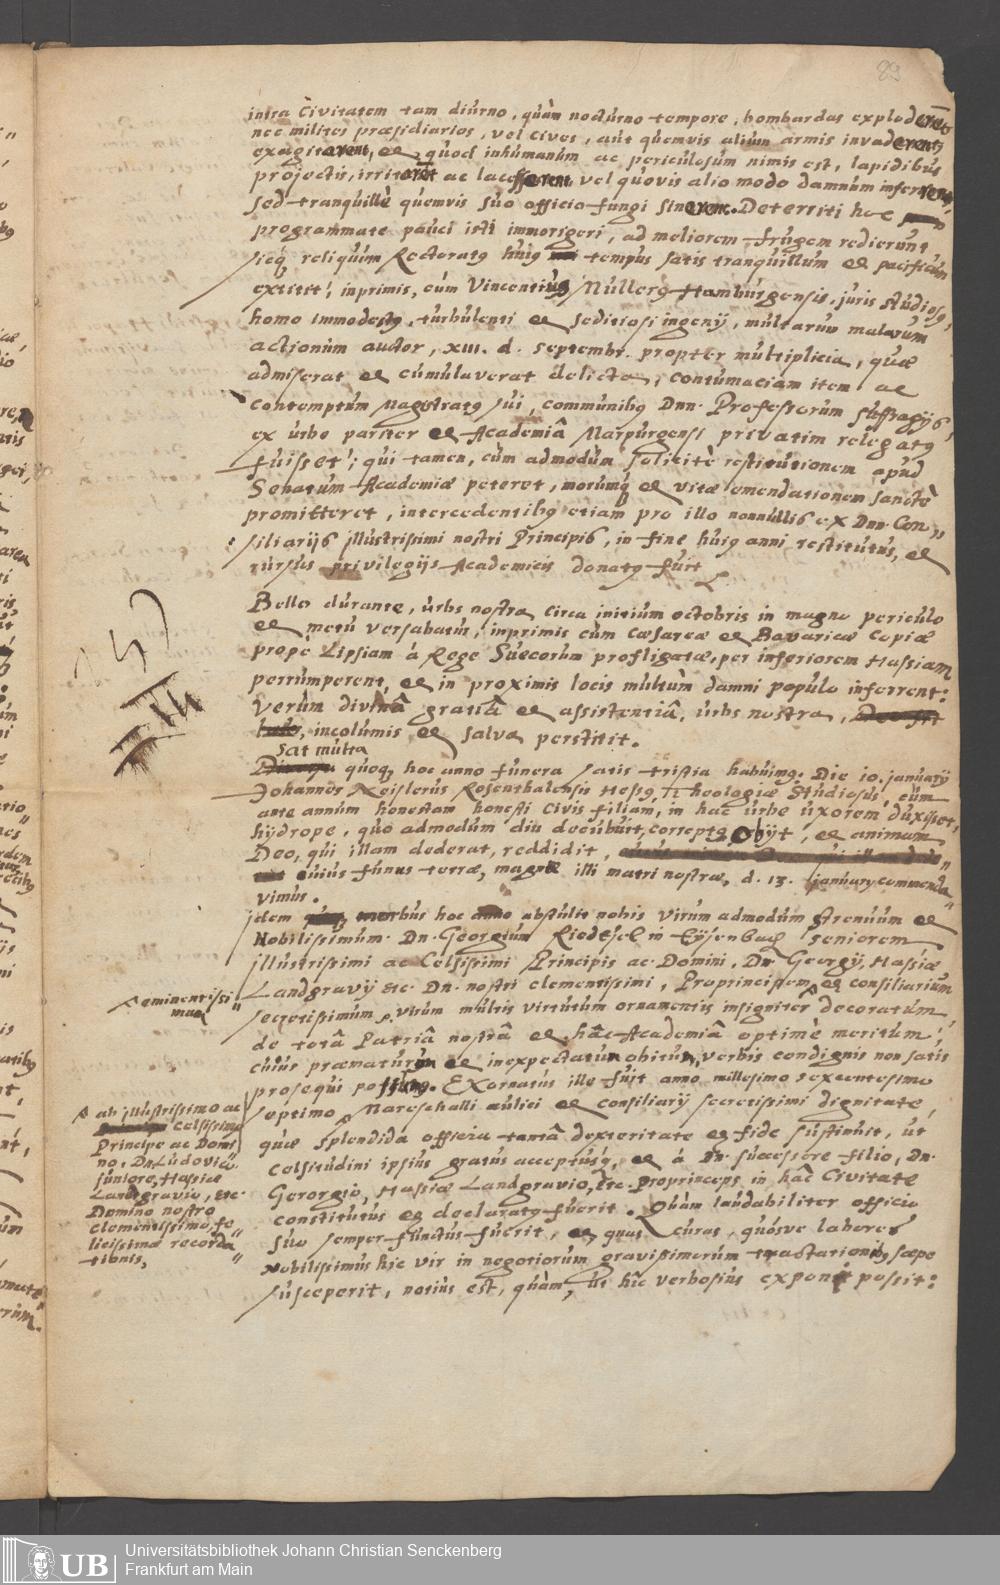 89
intra Civitatem tam diurno, quàm nocturno tempore, bombardas exploderent
nec milites præsidiarios, vel cives, aut quemvis alium armis invaderent,
exagitarent, et, quod inhumanum ac periculosum nimis est, lapidibus
projectis, irritarēt ac lacesserent, vel quovis alio modo damnum inferrent,
sed tranquillè quemvis suo officio fungi sinerent. Deterriti hoc
programmate pauci isti immorigeri, ad meliorem frugem redierunt
sicq; reliquum Rectoratus huius tempus satis tranquillum et pacificum
extitit; inprimis, cùm Vincentius Mullerus Hamburgensis, juris studiosus,
homo immodestus, turbulenti et seditiosi ingenij, multarum malarum
actionum auctor, XIII. d. Septembr. propter multiplicia, quæ
admiserat et cumulaverat delicta, contumaciam item ac
contemptum Magistratus sui, communibus Dnn. Professorum suffragijs
ex urbe pariter et Academiâ Marpurgensi privatim relegatus
fuisset; qui tamen, cùm admodum solicitè restitutionem apud
Senatum Academiæ peteret, morumq; et vitæ emendationem sanctè
promitteret, intercedentibus etiam pro illo nonnullis ex Dnn. Con„
siliarijs illustrissimi nostri Principis, in fine huius anni restitutus, et
rursus privilegijs Academicis donatus fuit
Bello durante, urbs nostra circa initium octobris in magno periculo
et metu versabatur, inprimis cùm Cæsareæ et Bavaricæ Copiæ
prope Lipsiam à Rege Suecorum profligatæ, per inferiorem Hassiam
perrumperent, et in proximis locis multùm damni populo inferrent:
Verùm divinâ gratiâ et assistentiâ, urbs nostra,
incolumis et salva perstitit.
Sat multa
quoq; hoc anno funera satis tristia habuimus. Die 10. januarij
Johannes Keislerus Rosenthalensis Hessus, Theologiæ Studiosus, cùm
ante annum honestam honesti Civis filiam, in hac urbe uxorem duxisset,
hydrope, quo admodum diu decubuit, correptus obijt, et animam
Deo, qui illam dederat, reddidit,
cuius funus terræ, magnæ illi matri nostræ, d. 13. januarij commenda„
vimus.
jdem morbus hoc anno abstulit nobis virum admodum strenuum et
Nobilissimum Dn. Georgium Riedesel in Eysenbach seniorem
illustrissimi ac Celsissimi Principis ac Domini, Dn. Georgij, Hassiæ
Landgravij etc. Dn. nostri clementissimi, Proprincipem et consiliarium
eminentissi„
mum
secretissimum, virum multis virtutum ornamentis insigniter decoratum
de totâ Patriâ nostrâ et hac Academiâ optimè meritum,
cuius præmaturum et inexpectatum obitum, verbis condignis non satis
prosequi possumus. Exornatus ille fuit anno millesimo sexcentesimo
septimo Mareschalli aulici et consiliarij secretissimi dignitate,
ab illustrissimo ac
Celsissimo
Principe ac Domi„
no, Dn. Ludovico
juniore, Hassiæ
Landgravio, etc.
Domino nostro
clementissimo, fe„
licissimæ recorda„
tionis,
quæ splendida officia tantâ dexteritate et fide sustinuit, ut
Celsitudini ipsius gratus acceptusq;, et à Dn. successore filio, Dn.
Gerorgio, Hassiæ Landgravio, etc. proprinceps in hâc Civitate
constitutus et declaratus fuerit. Quàm laudabiliter officio
suo semper functus fuerit, et quas curas, quósve labores
Nobilissimus hic vir in negotiorum gravissimorum tractationibus sæpe
susceperit, notius est, quàm, ut hîc verbosius exponi possit:
UB
Universitätsbibliothek Johann Christian Senckenberg
Frankfurt am Main